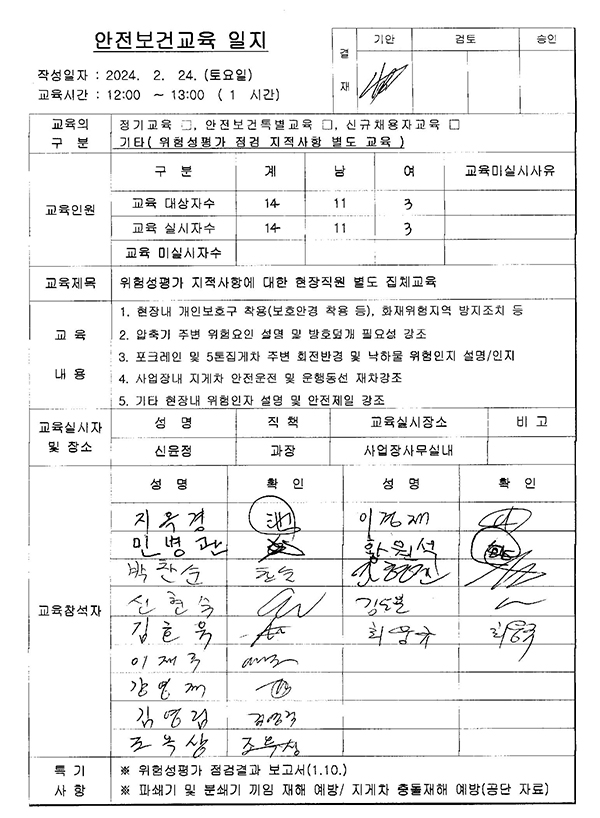 안전보건교육 일지
결 재
기안 검토 승인
작성일자 : 2024. 2. 24. (토요일)
교육시간 : 12:00 ~ 13:00 ( 1 시간)
교육의 구 분
정기교육 □, 안전보건특별교육 □, 신규채용자교육 □
기타( 위험성평가 점검 지적사항 별도 교육 )
교육인원
구 분 계 남 여 교육미실시사유
교육 대상자수 14 11 3
교육 실시자수 14 11 3
교육 미실시자수
교육제목 위험성평가 지적사항에 대한 현장직원 별도 집체교육
교 육 내 용
1. 현장내 개인보호구 착용(보호안경 착용 등), 화재위험지역 방지조치 등
2. 압축기 주변 위험요인 설명 및 방호덮개 필요성 강조
3. 포크레인 및 5톤집게차 주변 회전반경 및 낙하물 위험인지 설명/인지
4. 사업장내 지게차 안전운전 및 운행동선 재차강조
5. 기타 현장내 위험인자 설명 및 안전제일 강조
교육실시자 및 장소
성 명 직 책 교육실시장소 비 고
신윤정 과장 사업장사무실내
교육참석자
성 명 확 인 성 명 확 인
지옥경 이경재
민병관 황원석
박찬순 찬순
신현숙
김효욱
강영재
김영림
조옥상 조옥상
특 기 사 항
※ 위험성평가 점검결과 보고서(1.10.)
※ 파쇄기 및 분쇄기 끼임 재해 예방/ 지게차 충돌재해 예방(공단 자료)